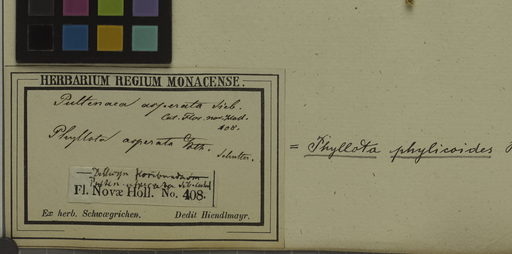 HERBARIUM REGIUM MONACENSE.
Pultenaea asperata Sieb.
Cat. Flor. nov. Holl.
408.
Phyllota asperata
= Phyllota phylicoides
Fl. Novæ Holl. No. 408.
Ex herb. Schwægrichen. Dedit Hiendlmayr.